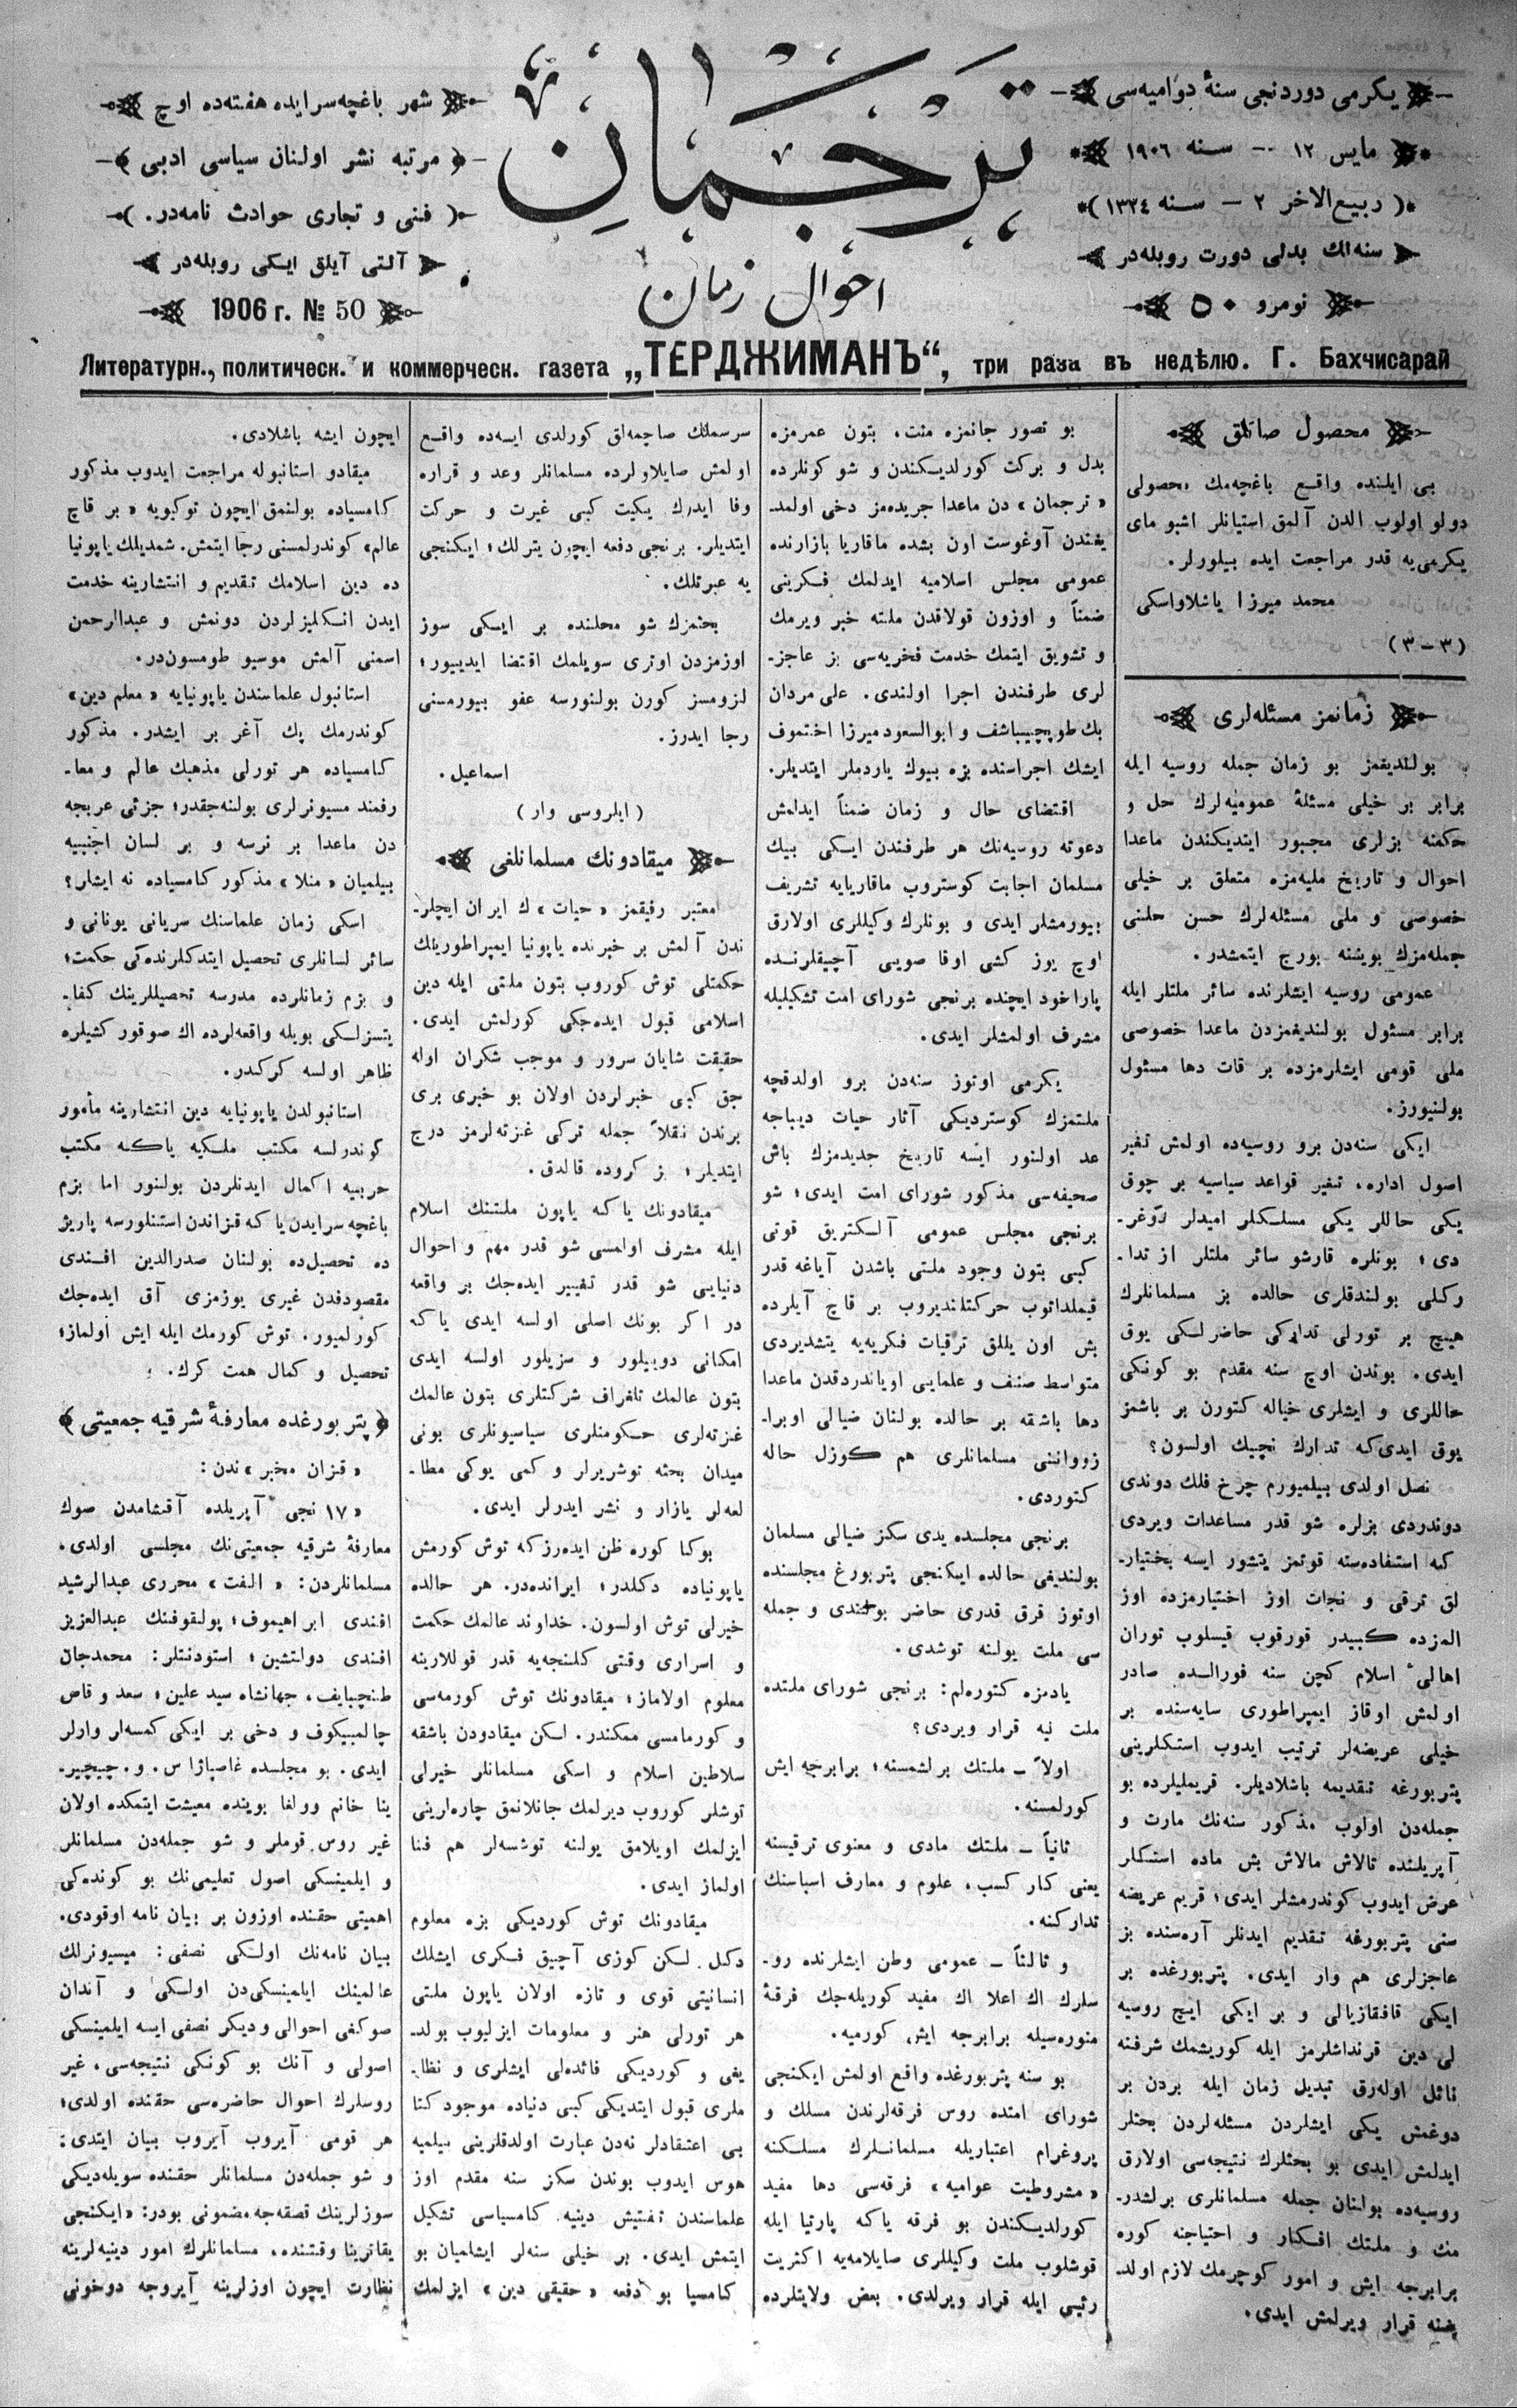 يكرمى دوردنجى سنۀ دواميه‌سى
مايس ١٢ -- سنه ١٩٠٦
( ربيع‌الاخر ٢ - سنه ١٣٢٤ )
سنه‌لك بدلى دورت روبله‌در
نومرو ٥٠
ترجمان
احوال زمان
شهر باغچه‌سرايده هفته‌ده اوچ
مرتبه نشر اولنان سياسى ادبى
فنى و تجارى حوادث نامه‌در.
آلتى آيلق ايكى روبله‌در
1906 г. № 50
Литературн., политическ. и коммерческ. газета „ТЕРДЖИМАНЪ“, три раза въ недѣлю. Г. Бахчисарай
محصول صاتلق
بى ايلنده واقع باغچه‌مك محصولى
دولو اولوب الدن آلمق استيانلر اشبو ماى
يكرمى‌يه قدر مراجعت ايده بيلورلر.
محمد ميرزا ياشلاواسكى
(٣-٣)
زمانمز مسئله‌لرى
بولنديغمز بو زمان جمله روسيه ايله
برابر بر خيلى مسئلۀ عموميه‌لرك حل و
حكمنه بزلرى مجبور ايتديكندن ماعدا
احوال و تاريخ مليه‌مزه متعلق بر خيلى
خصوصى و ملى مسئله‌لرك حسن حلنى
جمله‌مزك بويننه بورج ايتمشدر.
عمومى روسيه ايشلرنده سائر ملتلر ايله
برابر مسئول بولنديغمزدن ماعدا خصوصى
ملى قومى ايشلرمزده بر قات دها مسئول
بولنيورز.
ايكى سنه‌دن برو روسيه‌ده اولمش تغير
اصول اداره، تغير قواعد سياسيه بر چوق
يكى حاللر يكى مسلكلر اميدلر دوغر-
دى؛ بونلره قارشو سائر ملتلر از تدا-
ركلى بولندقلرى حالده بز مسلمانلرك
هيچ بر تورلى تداركى حاضرلكى يوق
ايدى. بوندن اوچ سنه مقدم بو كونكى
حاللرى و ايشلرى خياله كتورن بر باشمز
يوق ايدى‌كه تدارك نچيك اولسون؟
نصل اولدى بيلميورم چرخ فلك دوندى
دوندردى بزلره شو قدر مساعدات ويردى
كه استفاده‌سنه قوتمز يتشور ايسه بختيار-
لق ترقى و نجات اوز اختيارمزده اوز
المزده كبيدر قورقوب قيسلوب توران
اهالىٔ اسلام كچن سنه فورالده صادر
اولمش اوقاز ايمپراطورى سايه‌سنده بر
خيلى عريضه‌لر ترتيب ايدوب استكلرينى
پتربورغه تقديمه باشلاديلر. قريمليلرده بو
جمله‌دن اولوب مذكور سنه‌نك مارت و
آپريلنده تالاش مالاش بش ماده استكلر
عرض ايدوب كوندرمشلر ايدى؛ قريم عريضه
سنى پتربورغه تقديم ايدنلر آره‌سنده بز
عاجزلرى هم وار ايدى. پتربورغده بر
ايكى قافقازيالى و بر ايكى ايچ روسيه
لى دين قرنداشلرمز ايله كوريشمك شرفنه
نائل اوله‌رق تبديل زمان ايله بردن بر
دوغمش يكى ايشلردن مسئله‌لردن بحثلر
ايدلمش ايدى بو بحثلرك نتيجه‌سى اولارق
روسيه‌ده بولنان جمله مسلمانلرى برلشدر-
مك و ملتك افكار و احتياجنه كوره
برابرجه ايش و امور كوچرمك لازم اولد-
يغنه قرار ويرلمش ايدى.
بو تصور جانمزه منت، بتون عمرمزه
بدل و بركت كورلديكندن و شو كونلرده
«ترجمان» دن ماعدا جريده‌مز دخى اولمد-
يغندن آوغوست اون بشده ماقاريا بازارنده
عمومى مجلس اسلاميه ايدلمك فكرينى
ضمناً و اوزون قولاقدن ملته خبر ويرمك
و تشويق ايتمك خدمت فخريه‌سى بز عاجز-
لرى طرفندن اجرا اولندى. على مردان
بك طوپچيباشف و ابوالسعود ميرزا اختموف
ايشك اجراسنده بزه بيوك ياردملر ايتديلر.
اقتضاى حال و زمان ضمناً ايدلمش
دعوته روسيه‌نك هر طرفندن ايكى بيك
مسلمان اجابت كوستروب ماقاريايه تشريف
بيورمشلر ايدى و بونلرك وكيللرى اولارق
اوچ يوز كشى اوقا صويى آچيقلرنده
پاراخود ايچنده برنجى شوراى امت تشكيليله
مشرف اولمشلر ايدى.
يكرمى اوتوز سنه‌دن برو اولدقچه
ملتمزك كوسترديكى آثار حيات ديباجه
عد اولنور ايسه تاريخ جديدمزك باش
صحيفه‌سى مذكور شوراى امت ايدى؛ شو
برنجى مجلس عمومى آلكتريق قوتى
كبى بتون وجود ملتى باشدن آياغه قدر
قيملداتوب حركتلنديروب بر قاچ آيلرده
بش اون يللق ترقيات فكريه‌يه يتشديردى
متواسط صنف و علمايى اوياندردقدن ماعدا
دها باشقه بر حالده بولنان ضيالى اوبرا-
زووانننى مسلمانلرى هم كوزل حاله
كتوردى.
برنجى مجلسده يدى سكز ضيالى مسلمان
بولنديغى حالده ايكنجى پتربورغ مجلسنده
اوتوز قرق قدرى حاضر بولندى و جمله
سى ملت يولنه توشدى.
يادمزه كتوره‌لم: برنجى شوراى ملتده
ملت نيه قرار ويردى؟
اولاً - ملتك برلشمسنه؛ برابرجه ايش
كورلمسنه.
ثانياً - ملتك مادى و معنوى ترقيسنه
يعنى كار كسب، علوم و معارف اسباسنك
تداركنه.
و ثالثاً - عمومى وطن ايشلرنده رو-
سلرك اك اعلا اك مفيد كوريله‌جك فرقۀ
منوره‌سيله برابرجه ايش كورميه.
بو سنه پتربورغده واقع اولمش ايكنجى
شوراى امتده روس فرقه‌لرندن مسلك و
پروغرام اعتباريله مسلمانلرك مسلكنه
«مشروطيت عواميه» فرقه‌سى دها مفيد
كورلديكندن بو فرقه ياكه پارتيا ايله
قوشلوب ملت وكيللرى صايلامه‌يه اكثريت
رئيى ايله قرار ويرلدى. بعض ولايتلرده
سرسملك صاچمه‌لق كورلدى ايسه‌ده واقع
اولمش صايلاولرده مسلمانلر وعد و قراره
وفا ايدرك يكيت كبى غيرت و حركت
ايتديلر. برنجى دفعه ايچون يترلك؛ ايكنجى
يه عبرتلك.
بحثمزك شو محلنده بر ايكى سوز
اوزمزدن اوترى سويلمك اقتضا ايديبور؛
لزومسز كورن بولنورسه عفو بيورمسنى
رجا ايدرز.
اسماعيل.
(ايلروسى وار)
ميقادونك مسلمانلغى
معتبر رفيقمز «حيات» ك ايران ايچلر-
ندن آلمش بر خبرنده ياپونيا ايمپراطورينك
حكمتلى توش كوروب بتون ملتى ايله دين
اسلامى قبول ايده‌جكى كورلمش ايدى.
حقيقت شايان سرور و موجب شكران اوله
جق كبى خبرلردن اولان بو خبرى برى
برندن نقلاً جمله تركى غزته‌لرمز درج
ايتديلر؛ بز كروده قالدق.
ميقادونك ياكه ياپون ملتنك اسلام
ايله مشرف اولمسى شو قدر مهم و احوال
دنيايى شو قدر تغيير ايده‌جك بر واقعه
در اكر بونك اصلى اولسه ايدى ياكه
امكانى دويبلور و سزيلور اولسه ايدى
بتون عالمك تلغراف شركتلرى بتون عالمك
غزته‌لرى حكومتلرى سياسيونلرى بونى
ميدان بحثه توشريرلر و كمى يوكى مطا-
لعه‌لر يازار و نشر ايدرلر ايدى.
بوكا كوره ظن ايده‌رزكه توش كورمش
ياپونياده دكلدر؛ ايرانده‌در. هر حالده
خيرلى توش اولسون. خداوند عالمك حكمت
و اسرارى وقتى كلنجه‌يه قدر قوللارينه
معلوم اولاماز؛ ميقادونك توش كورمه‌سى
و كورمامسى ممكندر. لكن ميقادودن باشقه
سلاطين اسلام و اسكى مسلمانلر خيرلى
توشلر كوروب ديرلمك جانلانمق چاره‌لرينى
ايزلمك اويلامق يولنه توشسه‌لر هم فنا
اولماز ايدى.
ميقادونك توش كورديكى بزه معلوم
دكل. لكن كوزى آچيق فكرى ايشلك
انسانيتى قوى و تازه اولان ياپون ملتى
هر تورلى هنر و معلومات ايزليوب بولد-
يغى و كورديكى فائده‌لى ايشلرى و نظا-
ملرى قبول ايتديكى كبى دنياده موجود كتا
بى اعتقادلر نه‌دن عبارت اولدقلرينى بيلميه
هوس ايدوب بوندن سكز سنه مقدم اوز
علماسندن تفتيش دينيه كامسياسى تشكيل
ايتمش ايدى. بر خيلى سنه‌لر ايشلميان بو
كامسيا بو دفعه «حقيقى دين» ايزلمك
ايچون ايشه باشلادى.
ميقادو استانبوله مراجعت ايدوب مذكور
كامسياده بولنمق ايچون توكيويه «بر قاچ
عالم» كوندرلمسنى رجا ايتمش. شمديلك ياپونيا
ده دين اسلامك تقديم و انتشارينه خدمت
ايدن انكليزلردن دونمش و عبدالرحمن
اسمنى آلمش موسيو طومسون‌در.
استانبول علماسندن ياپونيايه «معلم دين»
كوندرمك پك آغر بر ايشدر. مذكور
كامسياده هر تورلى مذهبك عالم و معا-
رفمند مسيونرلرى بولنه‌جقدر؛ جزئى عربجه
دن ماعدا بر نرسه و بر لسان اجنبيه
بيلميان «منلا» مذكور كامسياده نه ايشلر؟
اسكى زمان علماسنك سريانى يونانى و
سائر لسانلرى تحصيل ايتدكلرنده‌كى حكمت؛
و بزم زمانلرده مدرسه تحصيللرينك كفا-
يتسزلكى بويله واقعه‌لرده اك صوقور كشيلره
ظاهر اولسه كركدر.
استانبولدن ياپونيايه دين انتشارينه مأمور
كوندرلسه مكتب ملكيه ياكه مكتب
حربيه اكمال ايدنلردن بولنور اما بزم
باغچه سرايدن ياكه قزاندن استنلورسه پاريژ
ده تحصيل‌ده بولنان صدرالدين افندى
مقصودفدن غيرى يوزمزى آق ايده‌جك
كورلميور. توش كورمك ايله ايش اولماز؛
تحصيل و كمال همت كرك.
﴿پتربورغده معارفۀ شرقيه جمعيتى﴾
«قزان مخبر»ندن:
«١٧ نجى آپريلده آقشامدن صوك
معارفۀ شرقيه جمعيتى‌نك مجلسى اولدى.
مسلمانلردن: «الفت» محررى عبدالرشيد
افندى ابراهيموف؛ پولقوفنك عبدالعزيز
افندى دولتشين؛ استودنتلر: محمدجان
طنچبايف، جهانشاه سيد علين؛ سعد و قاص
چالمبيكوف و دخى بر ايكى كمسه‌لر وارلر
ايدى. بو مجلسده غاصپاژا س. و. چيچير-
ينا خانم وولغا بوينده معيشت ايتمكده اولان
غير روس قوملر و شو جمله‌دن مسلمانلر
و ايلمينسكى اصول تعليمى‌نك بو كونده‌كى
اهميتى حقنده اوزون بر بيان نامه اوقودى.
بيان نامه‌نك اولكى نصفى: ميسيونرلك
عالمينك ايلمينسكى‌دن اولكى و آندان
صوكغى احوالى و ديكر نصفى ايسه ايلمينسكى
اصولى و آنك بو كونكى نتيجه‌سى، غير
روسلرك احوال حاضره‌سى حقنده اولدى؛
هر قومى آيروب آيروب بيان ايتدى:
و شو جمله‌دن مسلمانلر حقنده سويله‌ديكى
سوزلرينك قصقه‌جه مضمونى بودر: «ايكنجى
يقاترينا وقتنده، مسلمانلرك امور دينيه‌لرينه
نظارت ايچون اوزلرينه آيروجه دوخونى